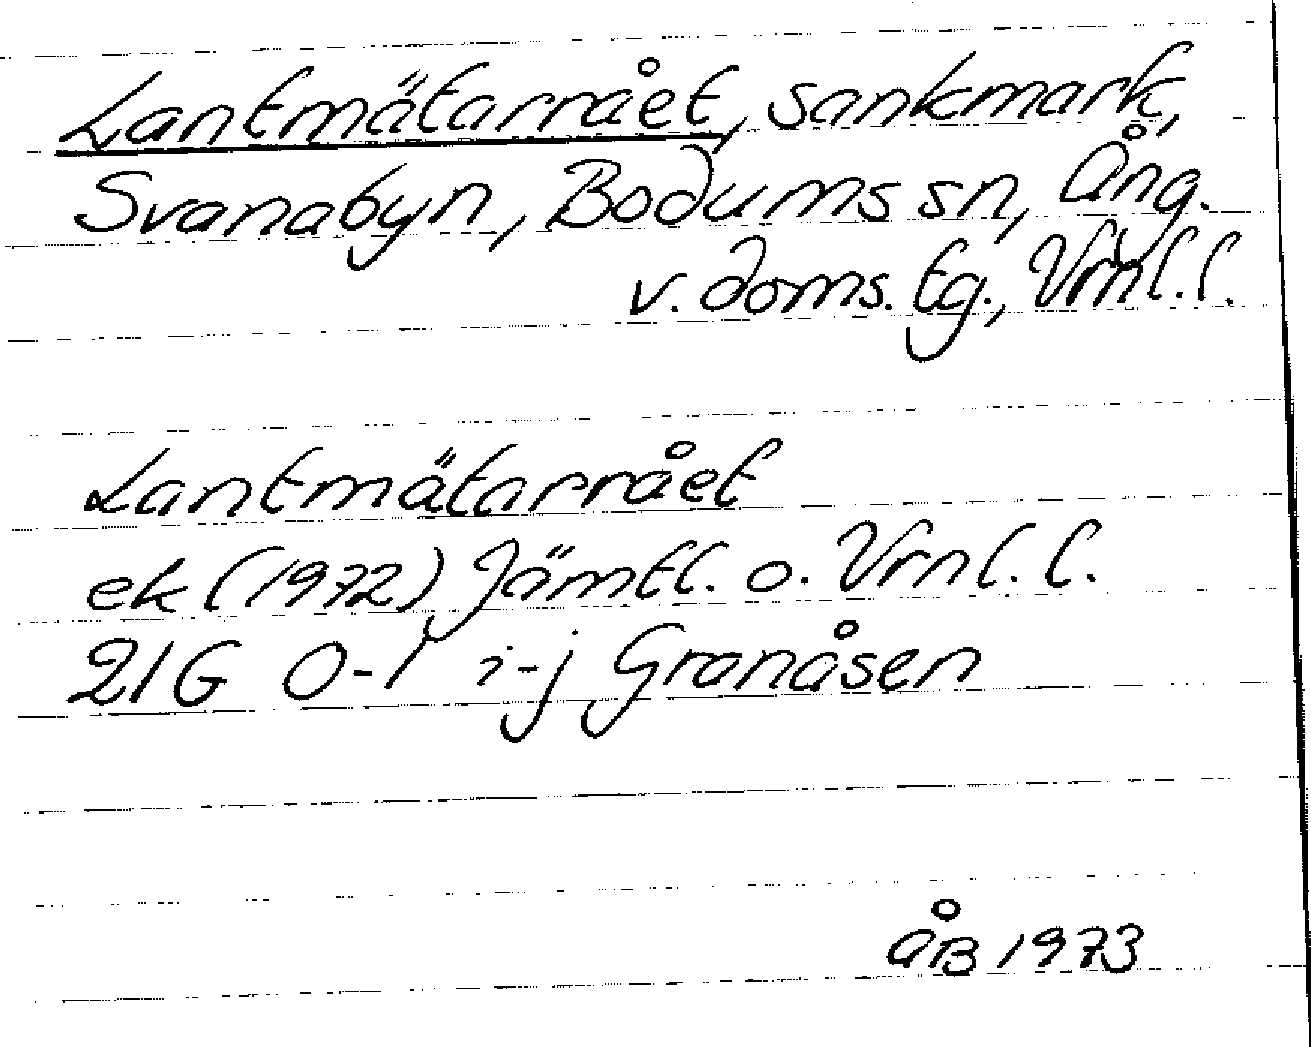 Lantmätarrået, sankmark,
Svanabyn, Bodums sn, Ång.
v. doms. tg., Vrnl. l.
Lantmätarrået
ek (1972) Jämtl. o. Vrnl. l.
21G 0-1 i-j Granåsen
ÅB 1973